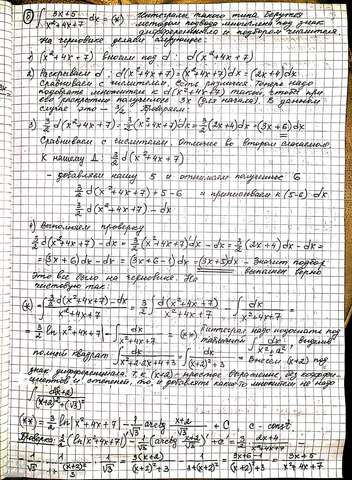 ⑤ ∫ (3x+5)/(x²+4x+7) dx = (*) Интегралы такого типа берутся
методом подвода знаменателя под знак
дифференциала и подбором числителя.
На черновике делаем следующее:
1) (x²+4x+7) вносим под d: d(x²+4x+7)
2) Раскрываем d: d(x²+4x+7) = (x²+4x+7)'dx = (2x+4)dx
Сравниваем с числителем. Есть разница. Теперь надо
подобрать множитель к d(x²+4x+7) такой, чтобы при
его раскрытии получилось 3x (для начала). В данном
случае это – 3/2. Выбираем
3) 3/2 d(x²+4x+7) = 3/2 (x²+4x+7)'dx = 3/2 (2x+4)dx = (3x+6)dx
Сравниваем с числителем. Отличие во втором слагаемом.
К нашему Δ: 3/2 d(x²+4x+7)
- добавляем нашу 5 и отнимаем полученное 6
3/2 d(x²+4x+7)+5-6 и приписываем к (5-6) dx
3/2 d(x²+4x+7) - dx
4) Выполняем проверку
3/2 d(x²+4x+7) - dx = 3/2 (x²+4x+7)'dx - dx = 3/2 (2x+4)dx - dx =
= (3x+6)dx - dx = (3x+6-1)dx = (3x+5)dx - значит подбор
выполнен верно
Это все было на черновике. На
чистовую так:
(*) = ∫ (3/2 d(x²+4x+7) - dx)/(x²+4x+7) = 3/2 ∫ d(x²+4x+7)/(x²+4x+7) - ∫ dx/(x²+4x+7) =
= 3/2 ln|x²+4x+7| - ∫ dx/(x²+2·2x+4+3) = (**) Интеграл надо подогнать под
табличный ∫ dx/(x²+a²), выделив
полный квадрат ∫ dx/((x+2)²+3) = Внесем (x+2) под
знак дифференциала. Т.к. (x+2) - простое выражение, без коэффи-
циентов и степеней, то и добавлять какие-то множители не надо
∫ d(x+2)/((x+2)²+(√3)²)
(**) = 3/2 ln|x²+4x+7| - 1/√3 arctg (x+2)/√3 + C C - const
Проверка: 3/2 (ln|x²+4x+7|)' - 1/√3 (arctg (x+2)/√3)' + C' = 3/2 · (2x+4)/(x²+4x+7) -
- 1/√3 · 1/(1+(x+2)²/3) · 1/√3 = 3(x+2)/((x+2)²+3) - 1/((x+2)²+3) = (3x+6-1)/((x+2)²+3) = (3x+5)/(x²+4x+7)